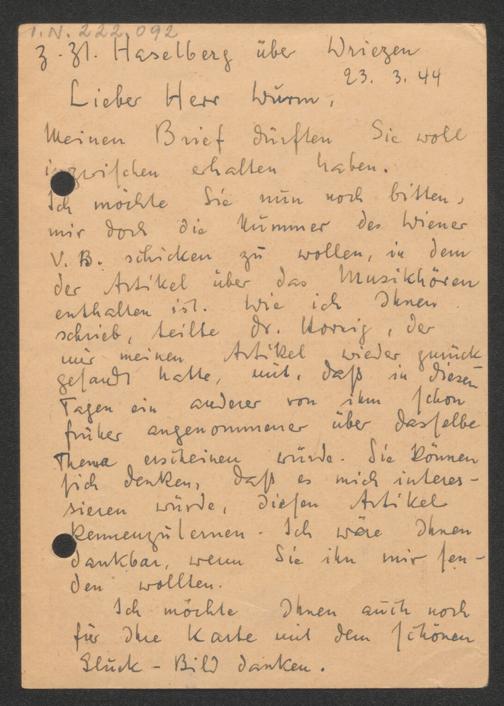 I.N. 222.092
z. Zl. Haselberg über Wriezen
23. 3. 44
Lieber Herr Wurm,
Meinen Brief dürften Sie wohl
inzwischen erhalten haben.
Ich möchte Sie nun noch bitten,
mir doch die Nummer des Wiener
V. B. schicken zu wollen, in dem
der Artikel über das Musikhören
enthalten ist. Wie ich Ihnen
schrieb, teilte Dr. Hornig, der
mir meinen Artikel wieder zurück
gesandt hatte, mit, daß in diesen
Tagen ein anderer von ihm schon
früher angenommener über dasselbe
Thema erscheinen würde. Sie können
sich denken, daß es mich interes-
sieren würde, diesen Artikel
kennenzulernen. Ich wäre Ihnen
dankbar, wenn Sie ihn mir sen-
den wollten.
Ich möchte Ihnen auch noch
für Ihre Karte mit dem schönen
Gluck-Bild danken.